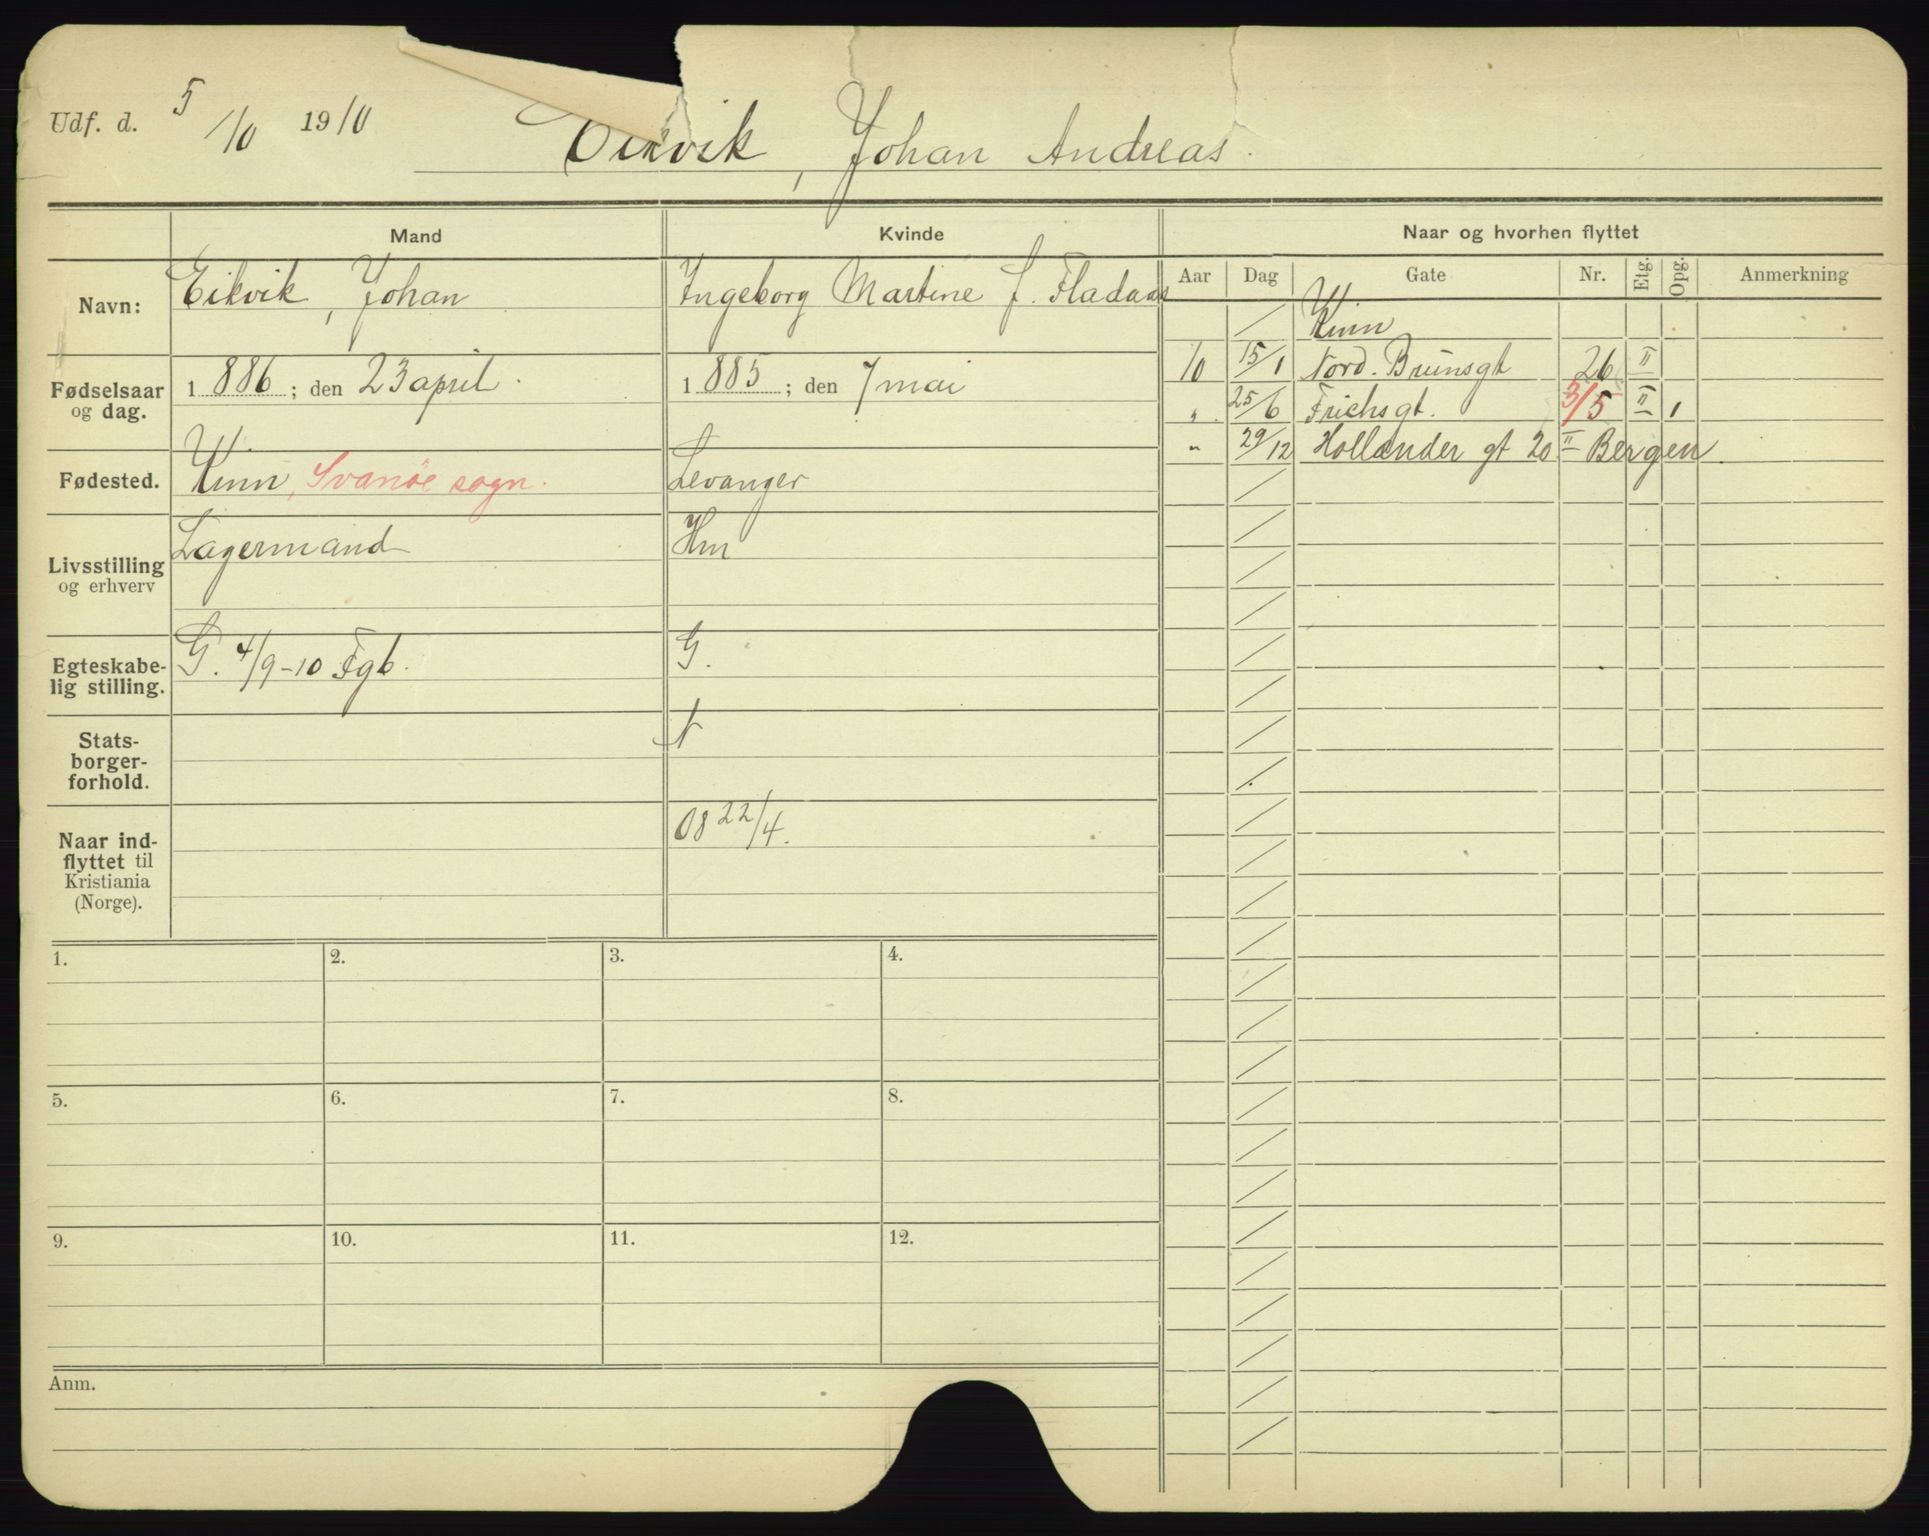 Udf. d. 5/10 1910
Eikvik, Johan Andreas.
Mand Kvinde Naar og hvorhen flyttet
Aar Dag Gate Nr. Etg. Opg. Anmerkning
Navn: Eikvik, Johan Ingeborg Martine f. Fladaas
Kinn
10 15/1 Nord. Brunsgt 26 II
Fødselsaar
og dag.
1886; den 23 april. 1885; den 7 mai
" 25/6 Frichsgt. 3/5 II 1
" 29/12 Hollendergt 20 II Bergen.
Fødested. Kinn, Svanøe sogn. Levanger
Livsstilling
og erhverv
Lagermand Hm
Egteskabe-
lig stilling.
G. 4/9-10 Fgb. G.
Stats-
borger-
forhold.
N
Naar ind-
flyttet til
Kristiania
(Norge).
08 22/4.
1. 2. 3. 4.
5. 6. 7. 8.
9. 10. 11. 12.
Anm.